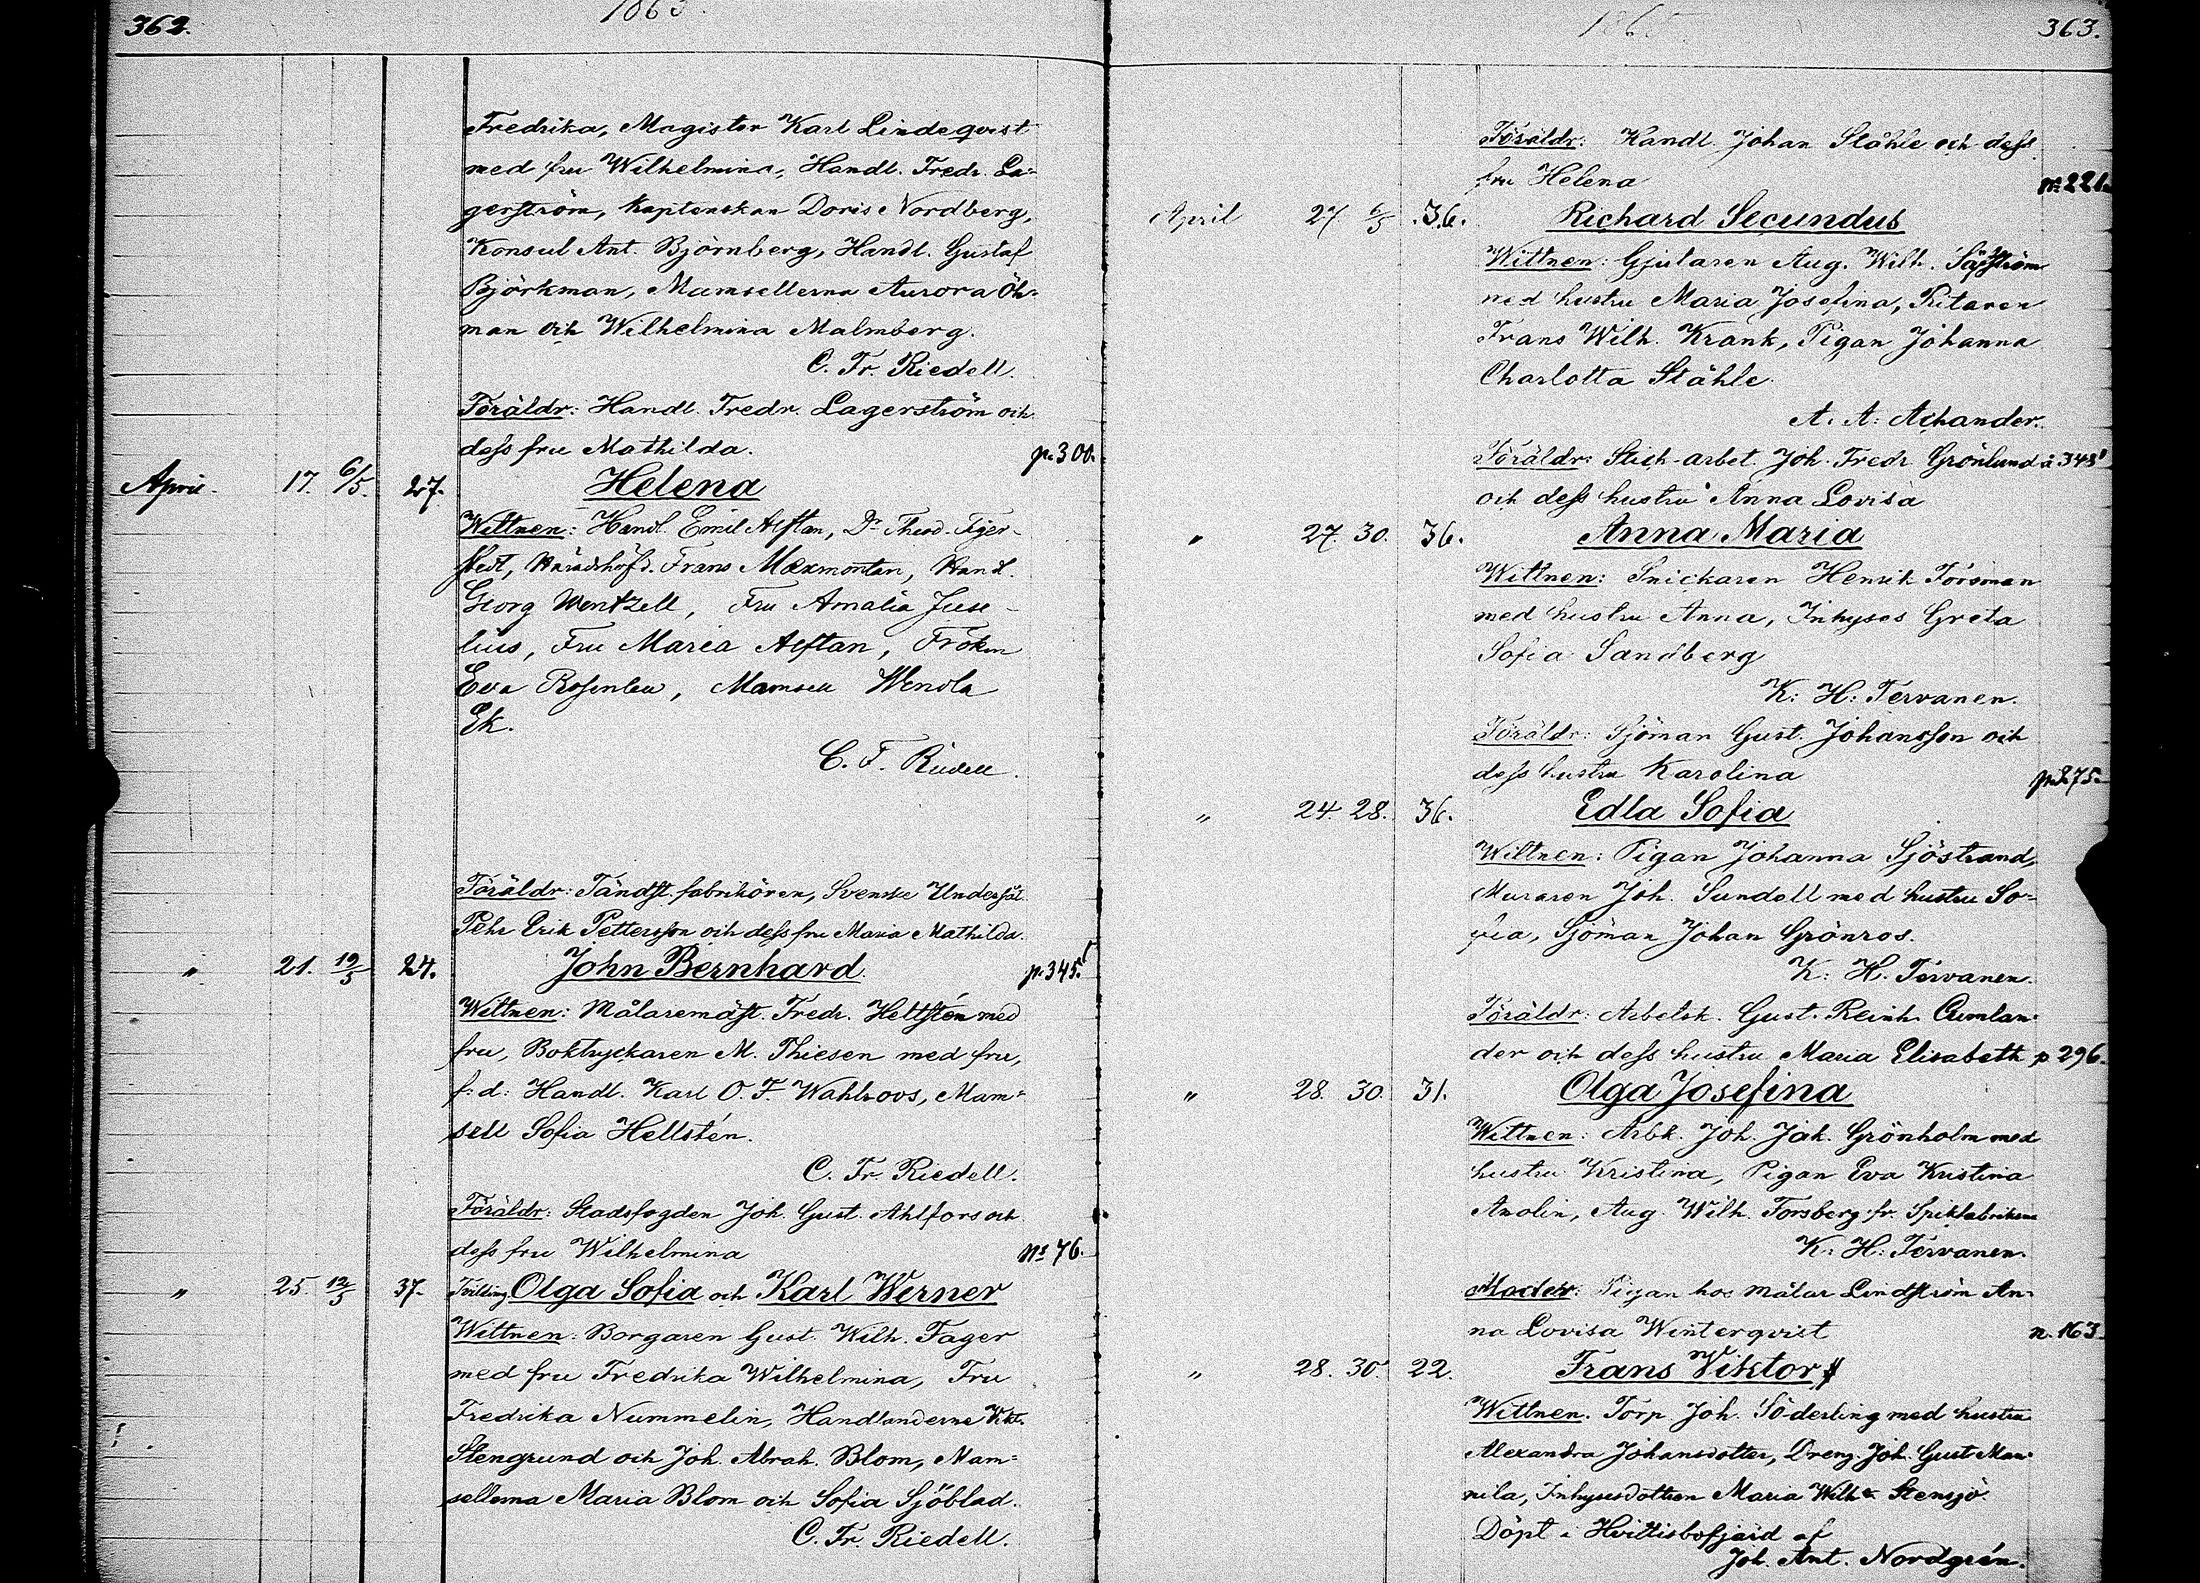 362.
Fredrika, Magister Karl Lindeqvist
med fru Wilhelmina, Handl. Fredr. La=
gerström, Kaptenskan Doris Nordberg,
Konsul Ant. Björnberg, Handl. Gustaf
Björkman, Mamsellerna Aurora Öh=
man och Wilhelmina Malmberg.
C. Fr. Riedell.
Föräldr: Handl. Fredr. Lagerström och
dess fru Mathilda. p. 300.
April 17. 6/5. 27. Helena
Wittnen: Handl. Emil Alftan, Dr Theod.
Häradshöfd. Frans Mexmontan, Handl.
Georg Wentzell, Fru Amalia Juse-
lius, Fru Maria Alftan, Fröken
Eva Rosenlew, Mamsell Wendla
Ek.
C. F. Riedell.
Föräldr: Tändst. fabrikören, Svenske Undersåt.
Pehr Erik Pettersson och dess fru Maria Mathilda.
" 21. 19/5 24. John Bernhard. p. 345.
Wittnen: Målaremäst. Fredr. Hellstén med
fru, Boktryckaren M. Thiesen med fru,
f: d: Handl. Karl O. F. Wahlroos, Mam=
sell Sofia Hellstén.
C. Fr. Riedell.
Föräldr: Stadsfogden Joh. Gust. Ahlfors och
dess fru Wilhelmina No 76.
" 25. 12/5 37. Tvilling. Olga Sofia och Karl Werner
Wittnen: Borgaren Gust. Wilh. Fager
med fru Fredrika Wilhelmina, Fru
Fredrika Nummelin, Handlanderne Vikt.
Stengrund och Joh. Abrah. Blom, Mam=
sellerna Maria Blom och Sofia Sjöblad.
C. Fr. Riedell.
363.
Föräldr: Handl. Johan Ståhle och dess
fru Helena No 221.
April 27 6/5 36. Richard Secundus
Wittnen: Gjutaren Aug. Wilh.
med hustru Maria Josefina, Ritaren
Frans Wilh. Krank, Pigan Johanna
Charlotta Ståhle.
A. A. Achander.
Föräldr: Stick-arbet. Joh. Fredr. Grönlund
och dess hustru Anna Lovisa
" 27. 30. 36. Anna Maria
Wittnen: Snickaren Henrik Forsman
med hustru Anna, Inhyses Greta
Sofia Sandberg
K: H: Tervanen.
Föräldr: Sjöman Gust. Johansson och
dess hustru Karolina p. 275.
" 24. 28. 36. Edla Sofia
Wittnen: Pigan Johanna Sjöstrand,
Muraren Joh. Sundell med hustru So=
fia, Sjöman Johan Grönros.
K: H. Tervanen.
Föräldr: Arbetsk. Gust. Reinh. Cumlan=
der och dess hustru Maria Elisabeth p 296.
" 28. 30. 31. Olga Josefina
Wittnen: Arbk. Joh. Jak. Grönholm med
hustru Kristina, Pigan Eva Kristina
Amolin, Aug. Wilh. Forsberg fr. Spikfabriken
K: H: Tervanen.
Moder: Pigan hos målar Lindström An=
na Lovisa Winterqvist n. 163.
" 28. 30. 22. Frans Viktor
Wittnen. Torp. Joh. Söderling med hustru
Alexandra Johansdotter, Dreng. Joh. Gust. Man=
nila, Inhysesdottren Maria Wilh. Stensjö.
Döpt i Hvittisbofjärd af
Joh. Ant. Nordgrén.